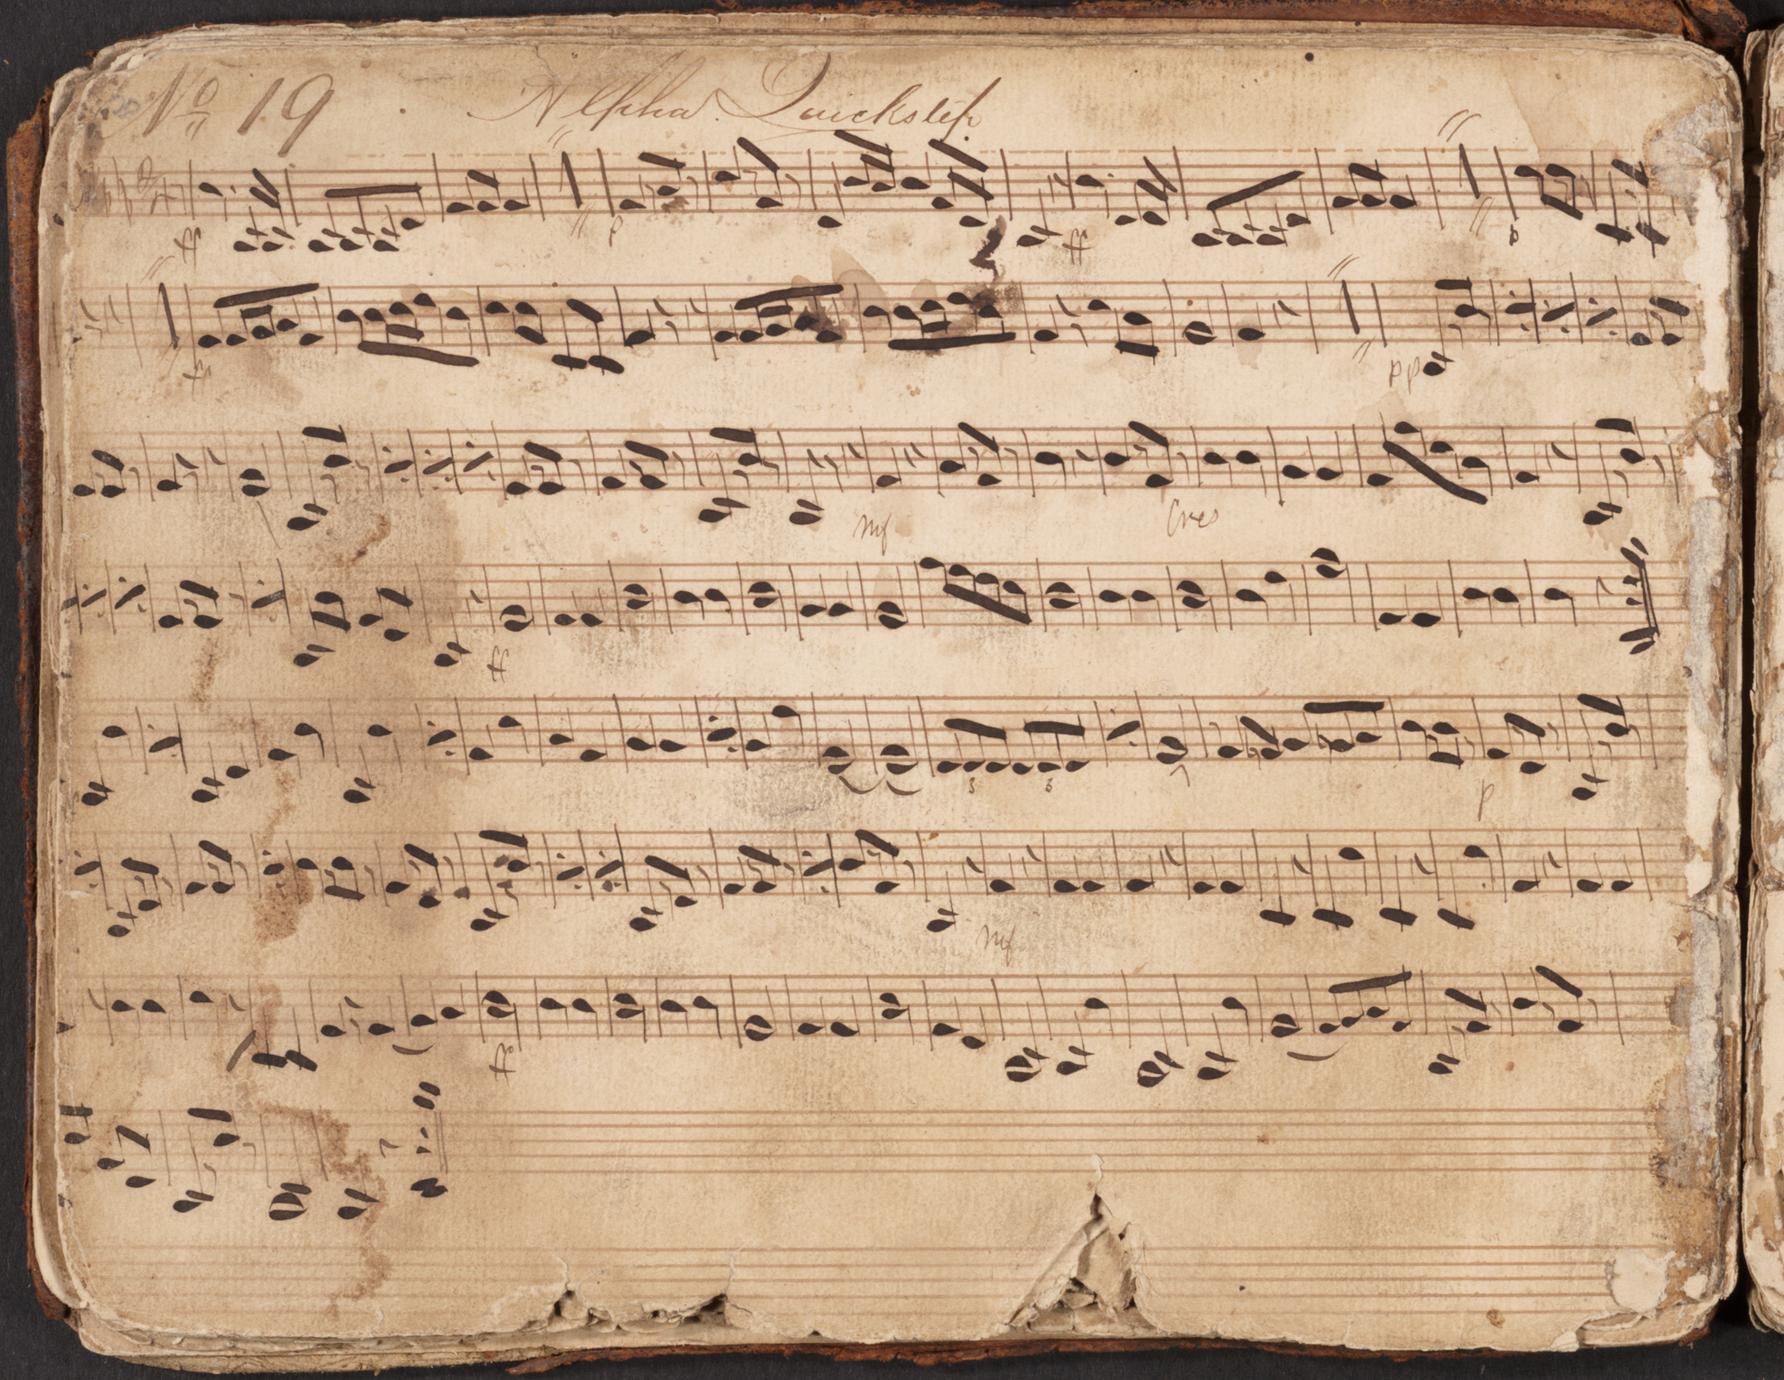 No 19 Alpha Quickstep
ff p ff p
ff pp
mf Cres
ff
3 3 p
mf
ff